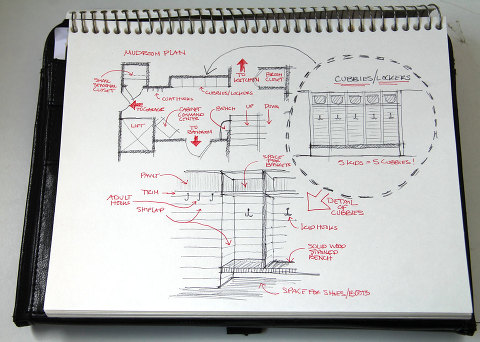 MUDROOM PLAN
SMALL
SEASONAL
CLOSET
TO
KITCHEN
BROOM
CLOSET
COAT HOOKS
CUBBIES/LOCKERS
TO GARAGE
LIFT
CABINET
COMMAND
CENTER
BENCH
UP
DOWN
TO
BATHROOM
CUBBIES/LOCKERS
5 KIDS = 5 CUBBIES!
SPACE
FOR
BASKETS
PAINT
TRIM
ADULT
HOOKS
SHIPLAP
DETAIL
OF
CUBBIES
KID HOOKS
SOLID WOOD
STAINED
BENCH
SPACE FOR SHOES/BOOTS